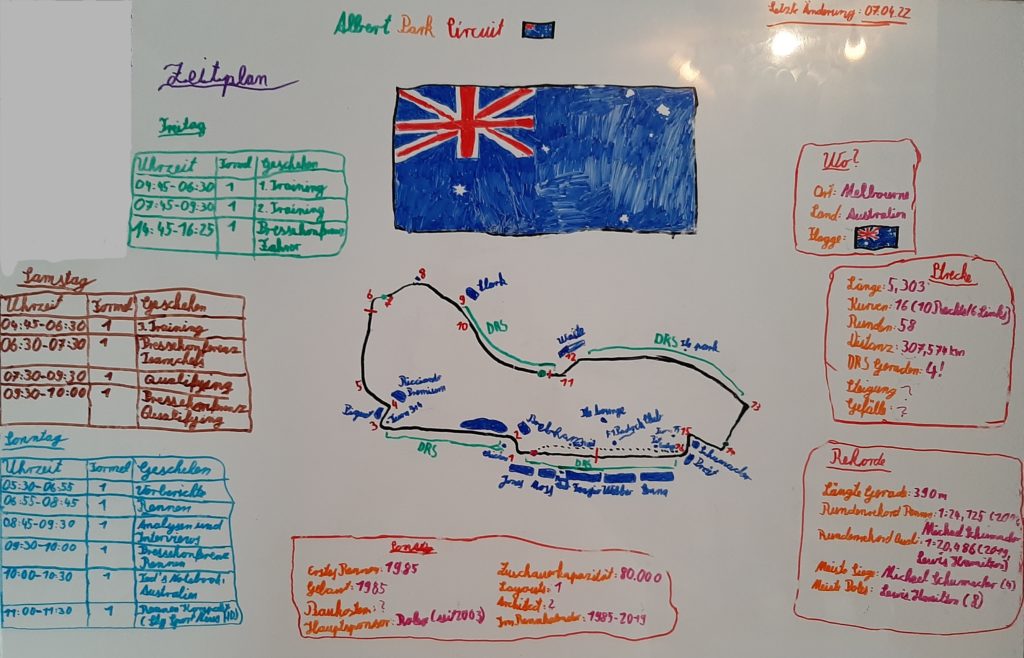 Letzte Änderung: 07.04.22
Albert Park Circuit
Zeitplan
Freitag
Uhrzeit Formel Geschehen
04:45-06:30 1 1. Training
07:45-09:30 1 2. Training
14:45-16:25 1 Pressekonferenz
Fahrer
Samstag
Uhrzeit Formel Geschehen
04:45-06:30 1 3. Training
06:30-07:30 1 Pressekonferenz
Teamchefs
07:30-09:30 1 Qualifying
09:30-10:00 1 Pressekonferenz
Qualifying
Sonntag
Uhrzeit Formel Geschehen
05:30-06:55 1 Vorberichte
06:55-08:45 1 Rennen
08:45-09:30 1 Analysen und
Interviews
09:30-10:00 1 Pressekonferenz
Rennen
10:00-10:30 1 Ted's Notebook:
Australien
11:00-11:30 1 Rennen Kompakt
(Sky Sport News HD)
Wo?
Ort: Melbourne
Land: Australien
Flagge:
Strecke
Länge: 5,303
Kurven: 16 (10 Rechts/6 Links)
Runden: 58
Distanz: 307,574 km
DRS Geraden: 4!
Steigung ?
Gefälle: ?
Rekorde
Längste Gerade: 390m
Rundenrekord Rennen: 1:24,125 (2004
Michael Schumacher
Rundenrekord Quali: 1:20,486 (2019
Lewis Hamilton)
Meiste Siege: Michael Schumacher (4)
Meiste Poles: Lewis Hamilton (8)
8
6
7
9
Clark
10
DRS
Waite
12
11
DRS
park
13
5
Ricciardo
4
3
DRS
2
1
Lounge
DRS
15
14
Schumacher
Jones
Webber
Senna
Sonstiges
Erstes Rennen: 1985
Gebaut: 1985
Baukosten: ?
Hauptsponsor: Rolex (seit 2003)
Zuschauerkapazität: 80.000
Layouts: 1
Architekt: ?
Im Rennkalender: 1985-2019